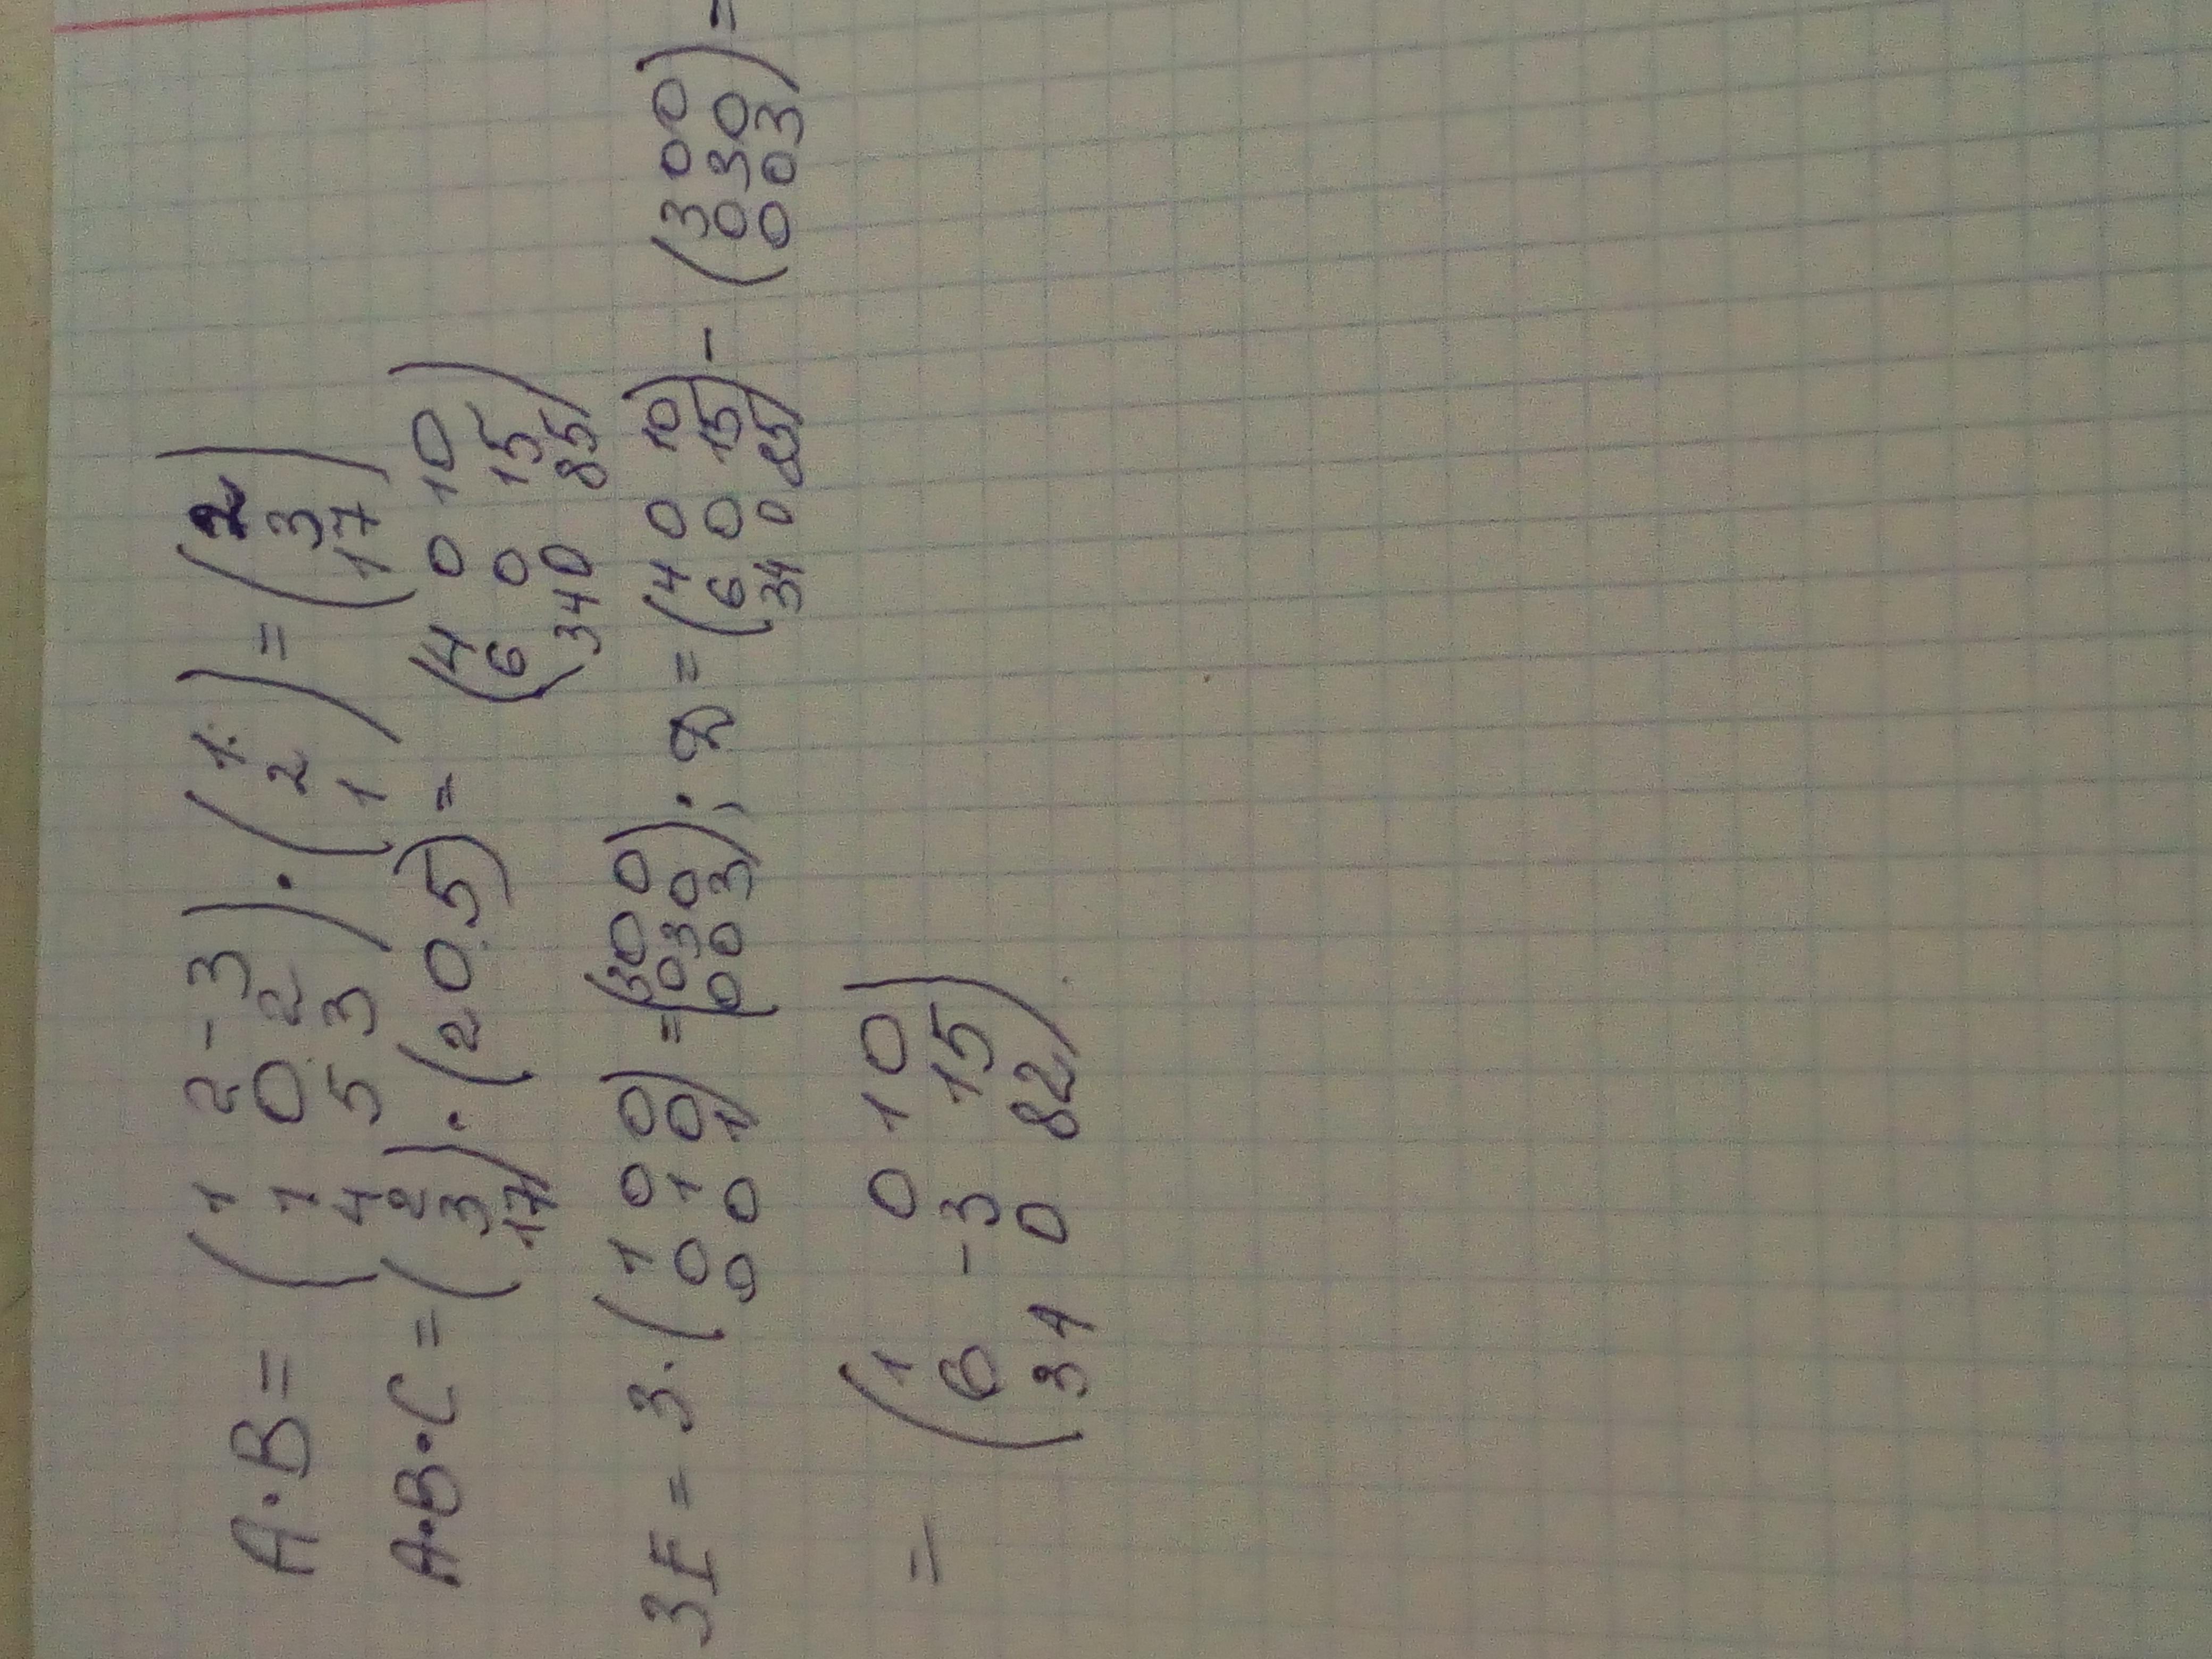 A·B = (1 2 -3
1 0 2
4 5 3) · (1
2
1) = (2
3
17)
A·B·C = (2
3
17) · (2 0 5) = (4 0 10
6 0 15
34 0 85)
3E = 3 · (1 0 0
0 1 0
0 0 1) = (3 0 0
0 3 0
0 0 3); D = (4 0 10
6 0 15
34 0 85) - (3 0 0
0 3 0
0 0 3) =
= (1 0 10
6 -3 15
34 0 82)